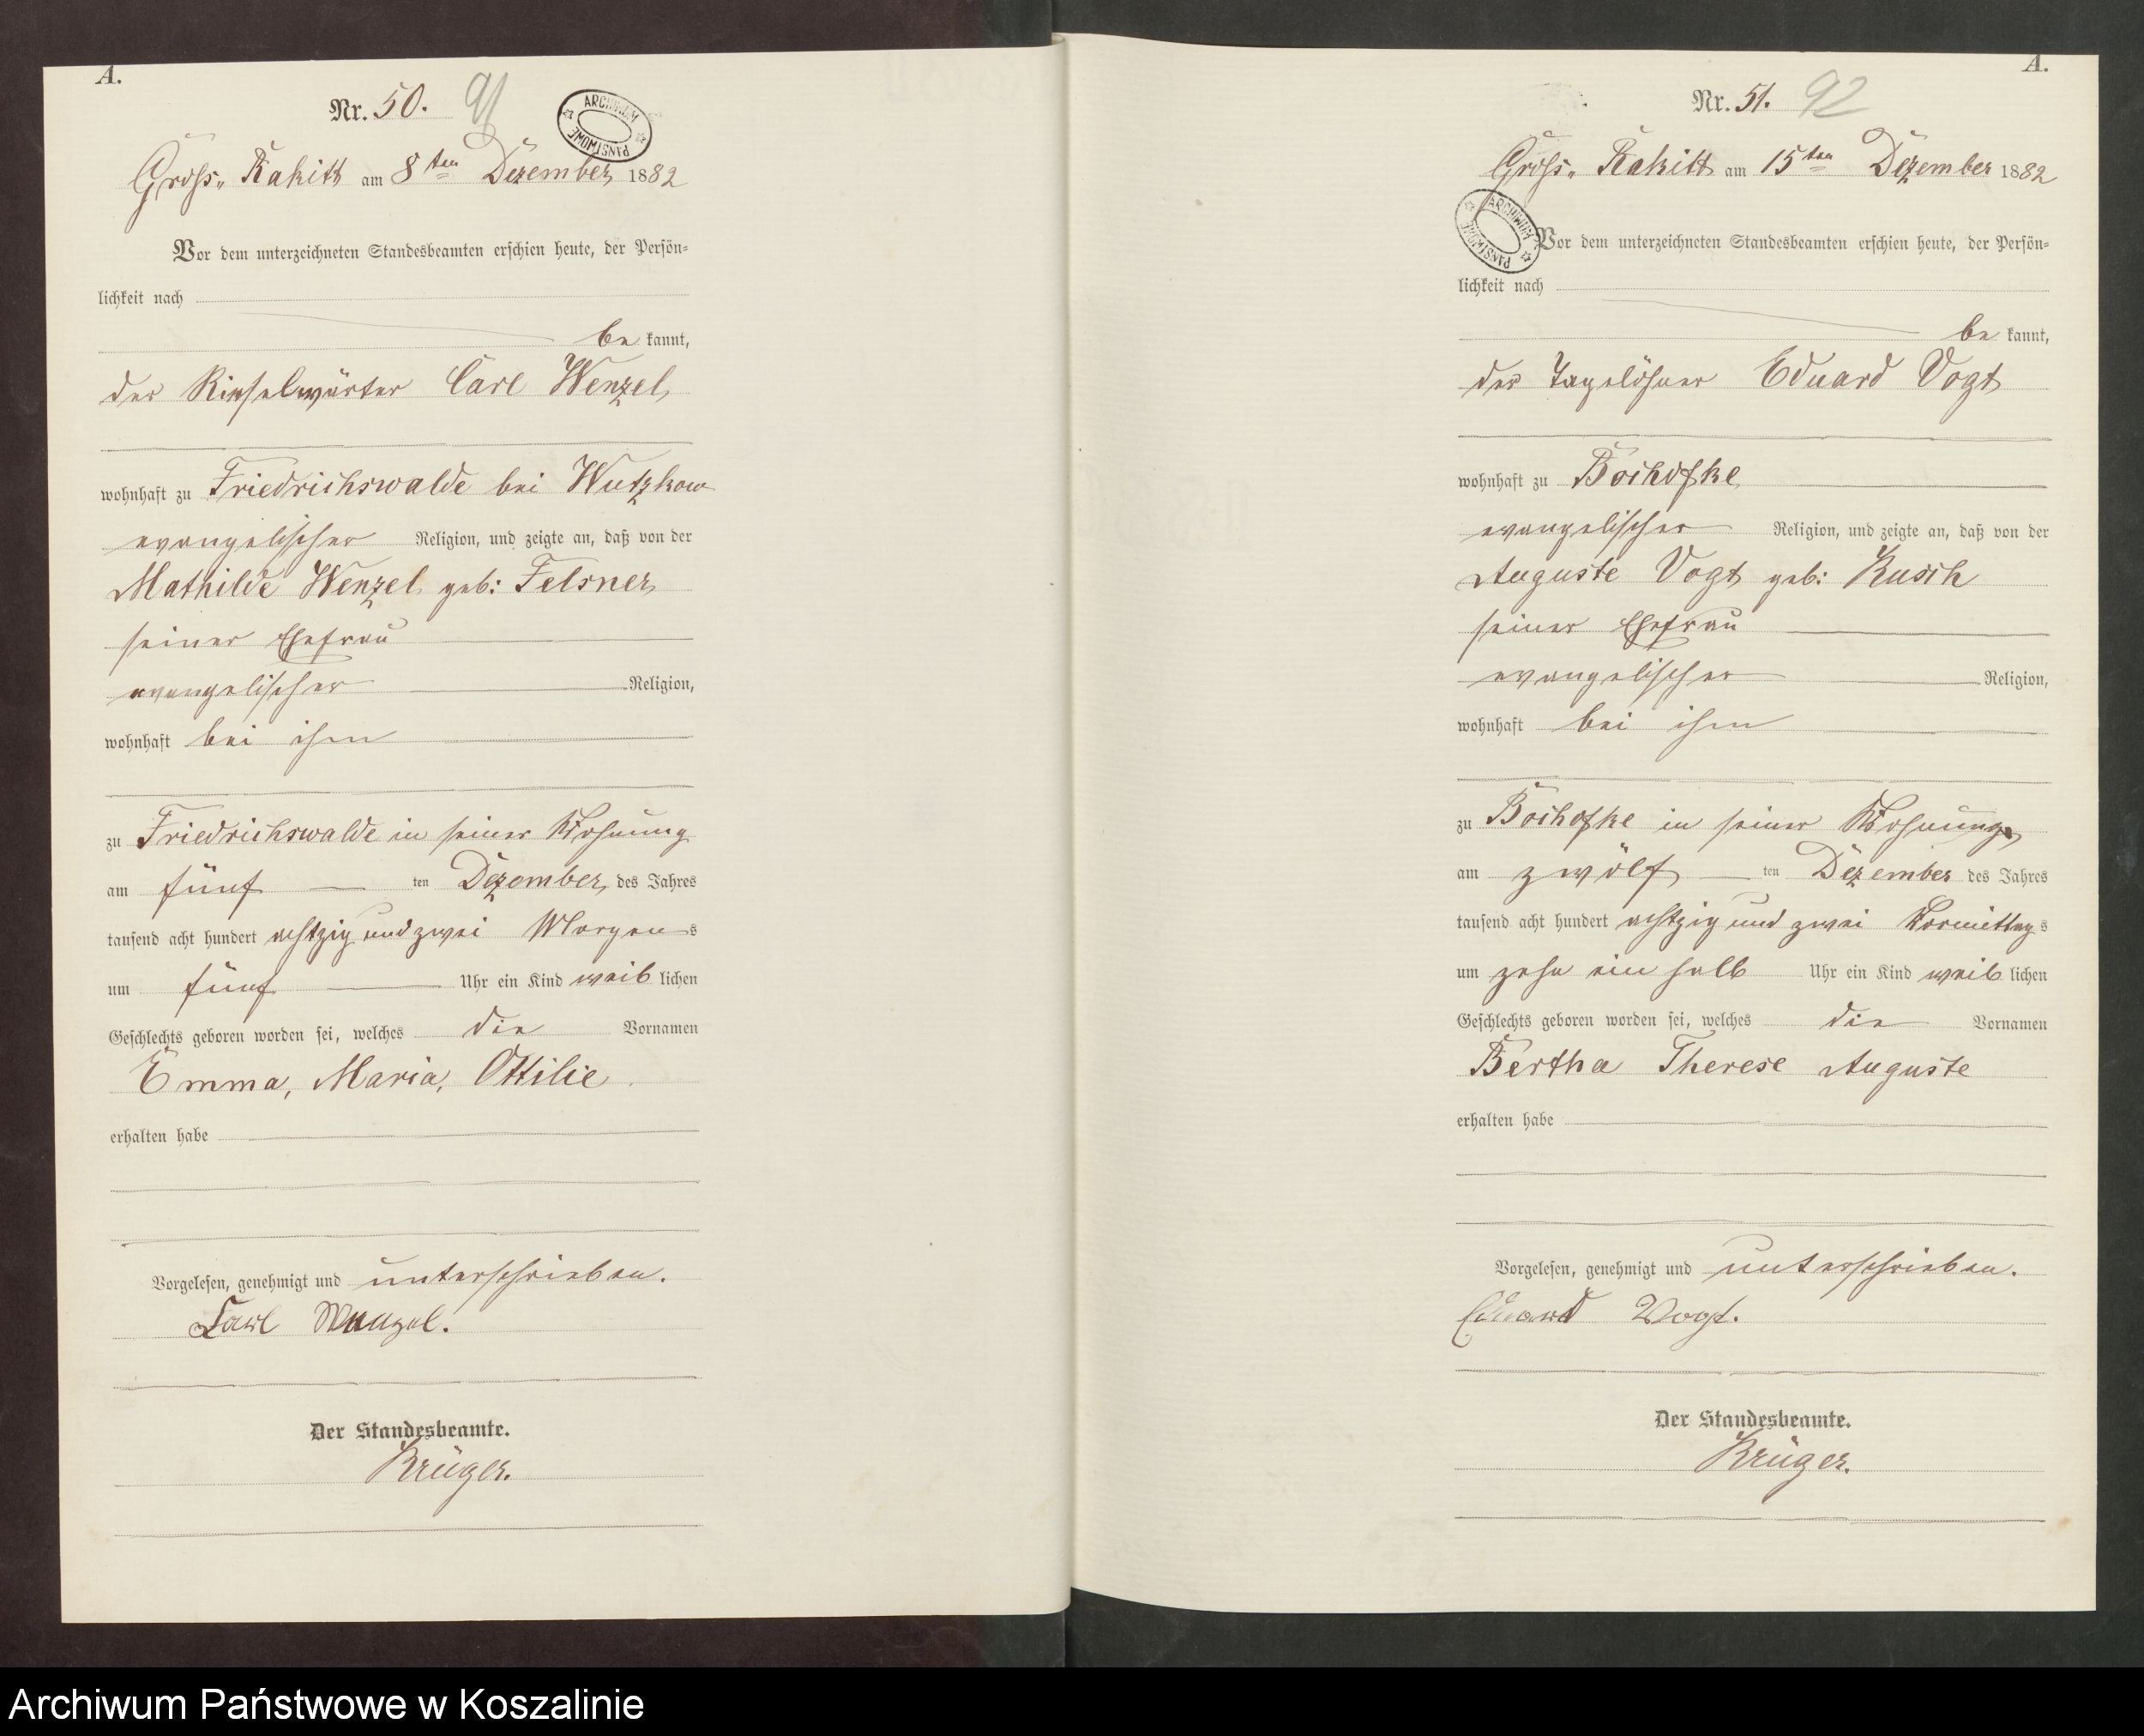 A.
Nr. 50. 91
ARCHIWUM PAŃSTWOWE
Gross-Rakitt am 8ten Dezember 1882
Vor dem unterzeichneten Standesbeamten erschien heute, der Persön-
lichkeit nach
be kannt,
der Rieselwärter Carl Wenzel
wohnhaft zu Friedrichswalde bei Wutzkow
evangelischer Religion, und zeigte an, daß von der
Mathilde Wenzel geb: Felsner
seiner Ehefrau
evangelischer Religion,
wohnhaft bei ihm
zu Friedrichswalde in seiner Wohnung
am fünf ten Dezember des Jahres
tausend acht hundert achtzig und zwei Morgens
um fünf Uhr ein Kind weib lichen
Geschlechts geboren worden sei, welches die Vornamen
Emma, Maria, Ottilie
erhalten habe
Vorgelesen, genehmigt und unterschrieben.
Carl Wenzel.
Der Standesbeamte.
Krüger.
A.
Nr. 51. 92
Gross-Rakitt am 15ten Dezember 1882
ARCHIWUM PAŃSTWOWE
Vor dem unterzeichneten Standesbeamten erschien heute, der Persön-
lichkeit nach
be kannt,
der Tagelöhner Eduard Vogt
wohnhaft zu Bochofke
evangelischer Religion, und zeigte an, daß von der
Auguste Vogt geb: Kusch
seiner Ehefrau
evangelischer Religion,
wohnhaft bei ihm
zu Bochofke in seiner Wohnung
am zwölf ten Dezember des Jahres
tausend acht hundert achtzig und zwei Vormittags
um zehn ein halb Uhr ein Kind weib lichen
Geschlechts geboren worden sei, welches die Vornamen
Bertha Therese Auguste
erhalten habe
Vorgelesen, genehmigt und unterschrieben.
Eduard Vogt.
Der Standesbeamte.
Krüger.
Archiwum Państwowe w Koszalinie